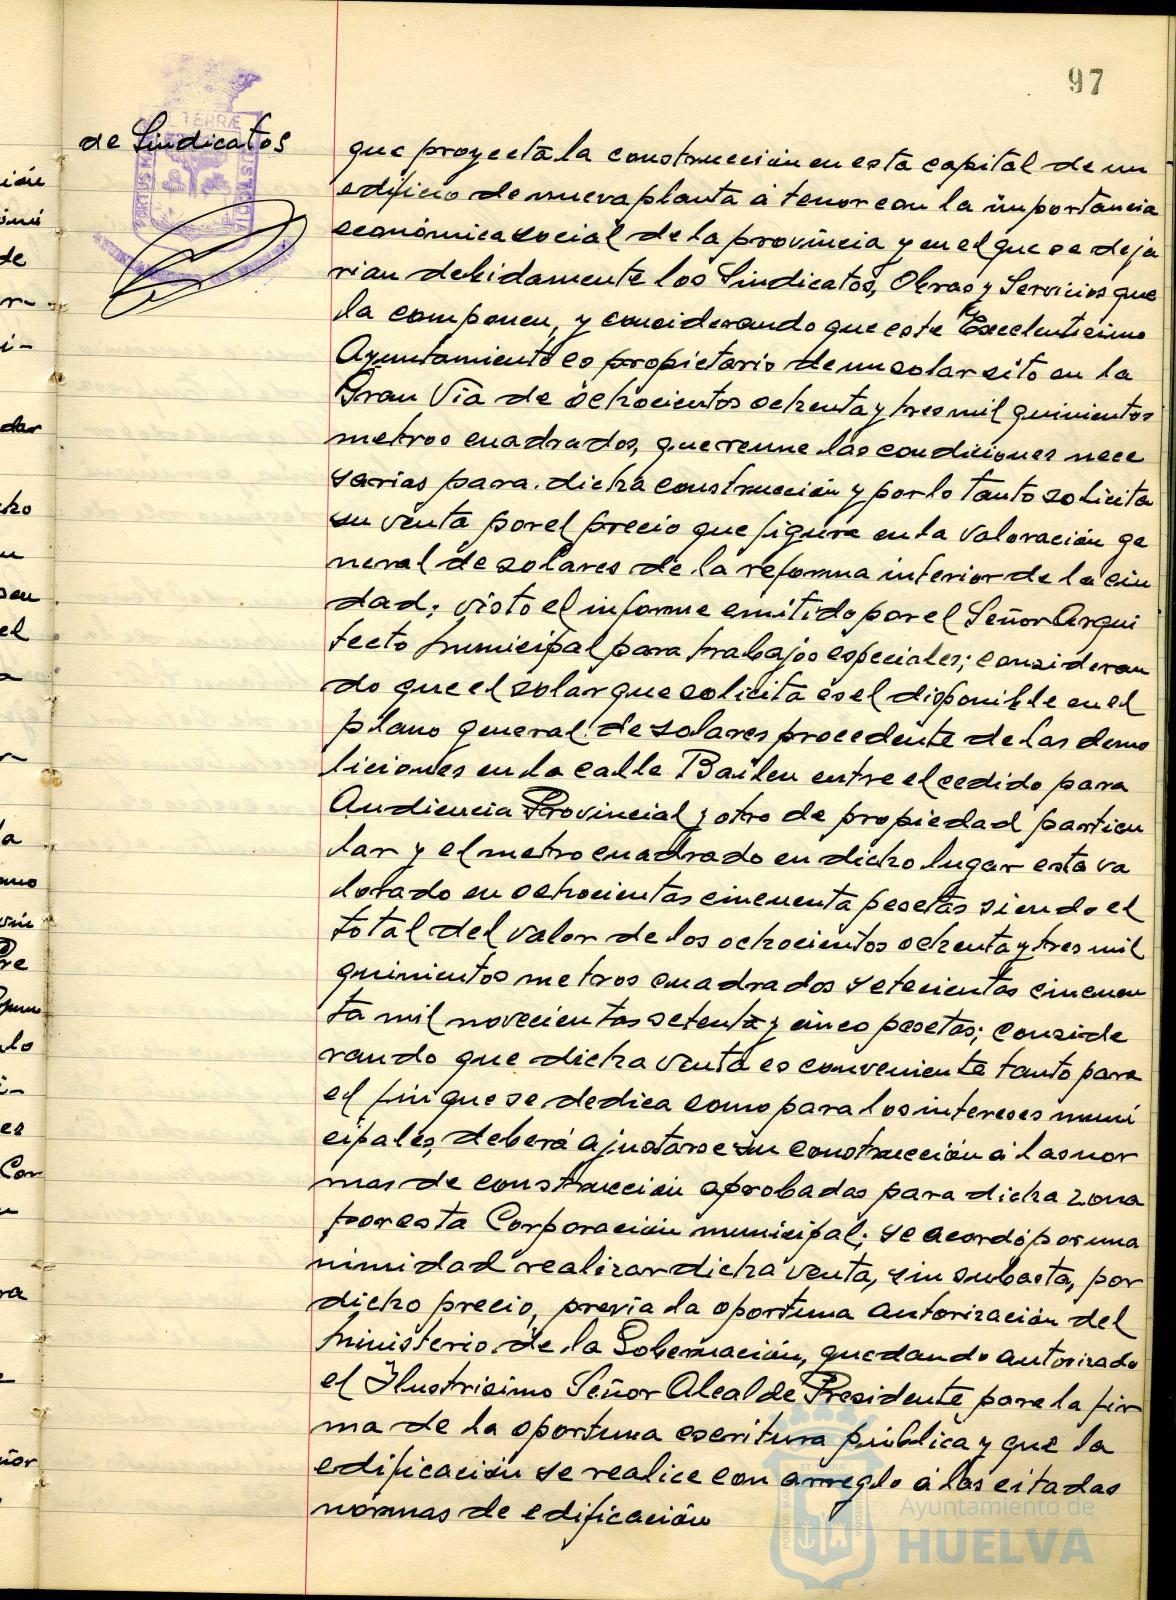 97
de Sindicatos
que proyecta la construcción en esta capital de un
edificio de nueva planta á tenor con la importancia
económica social de la provincia y en el que se deja
rian debidamente los Sindicatos, Obras y Servicios que
la componen, y considerando que este Excelentisimo
Ayuntamiento es propietario de un solar sito en la
Gran Vía de ochocientos ochenta y tres mil quinientos
metros cuadrados, que reune las condiciones nece
sarias para dicha construcción y por lo tanto solicita
su venta por el precio que figura en la valoración ge
neral de solares de la reforma interior de la ciu
dad; visto el informe emitido por el Señor Arqui
tecto municipal para trabajos especiales; consideran
do que el solar que solicita es el disponible en el
plano general de solares procedente de las demo
liciones en la calle Bailen entre el cedido para
Audiencia Provincial y otro de propiedad particu
lar y el metro cuadrado en dicho lugar esta va
lorado en ochocientas cincuenta pesetas siendo el
total del valor de los ochocientos ochenta y tres mil
quinientos metros cuadrados setecientas cincuen
ta mil novecientas setenta y cinco pesetas; conside
rando que dicha venta es conveniente tanto para
el fin que se dedica como para los intereses muni
cipales, deberá ajustarse su construcción á las nor
mas de construcción aprobadas para dicha zona
por esta Corporación municipal; se acordó por una
nimidad realizar dicha venta, sin subasta, por
dicho precio, previa la oportuna autorización del
Ministerio de la Gobernación, quedando autorizado
el Ilustrisimo Señor Alcalde Presidente para la fir
ma de la oportuna escritura pública y que la
edificación se realice con arreglo á las citadas
normas de edificación
Ayuntamiento de
HUELVA